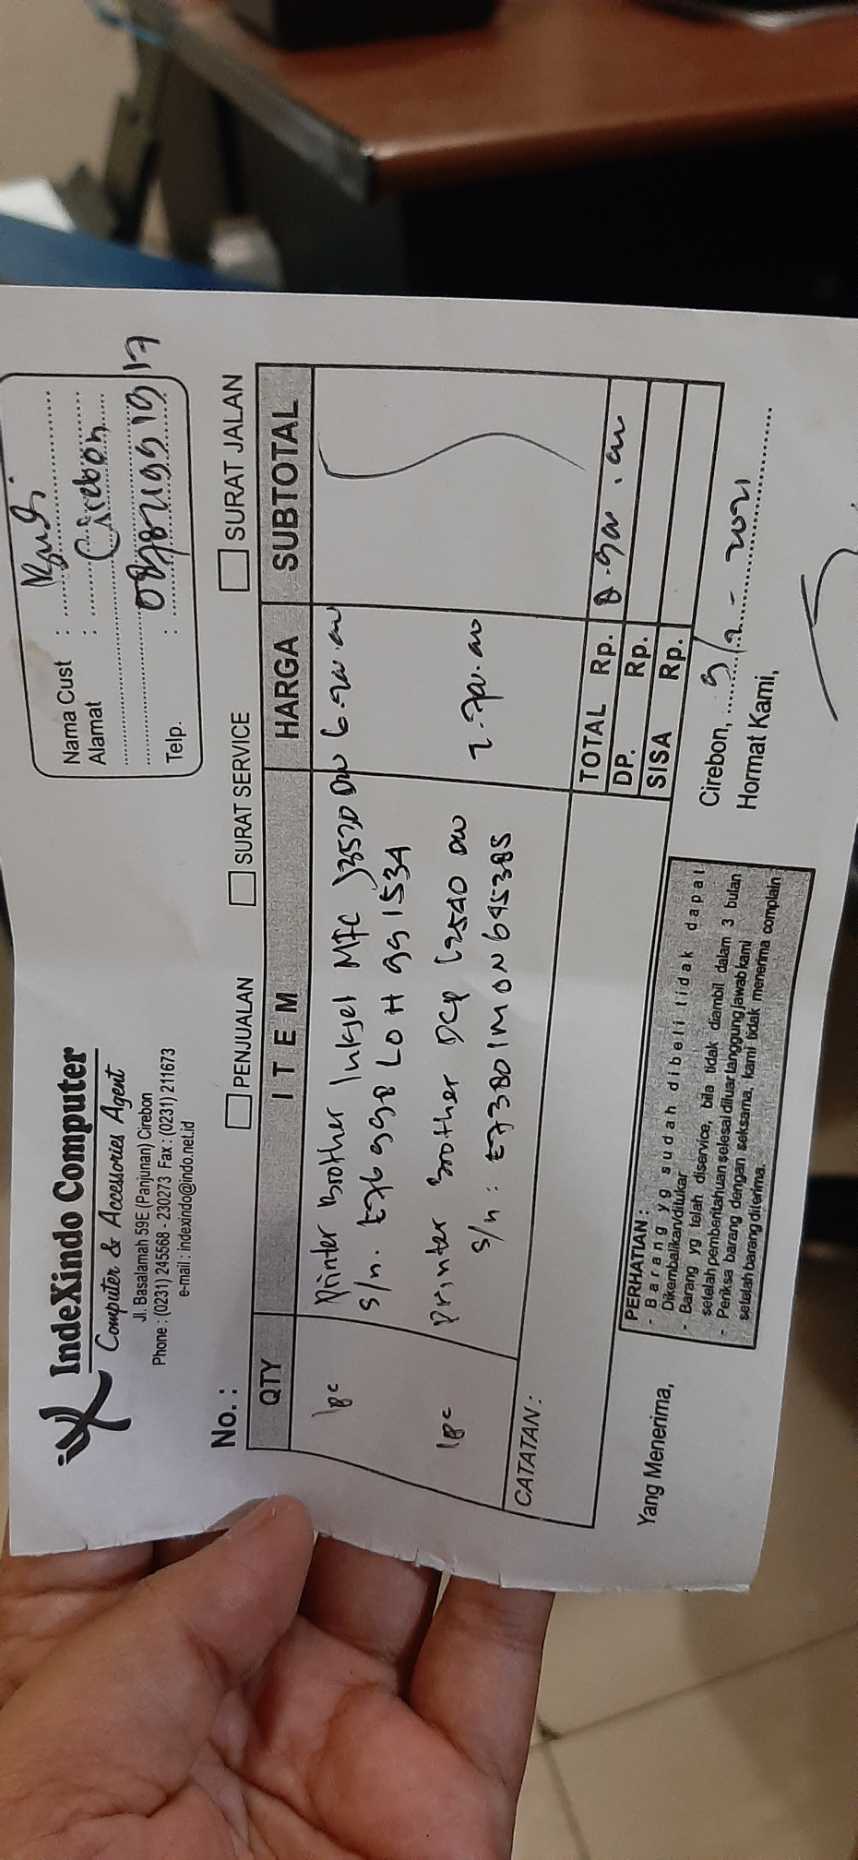 IndeXindo Computer
Computer & Accessories Agent
Jl. Basalamah 59E (Panjunan) Cirebon
Phone : (0231) 245568 - 230273 Fax : (0231) 211673
e-mail : indexindo@indo.net.id
Nama Cust : Budi
Alamat : Cirebon
Telp. :
No. :
PENJUALAN SURAT SERVICE SURAT JALAN
QTY ITEM HARGA SUBTOTAL
1pc Printer Brother Inkjet MFC J3520 DW
S/n.
1pc Printer Brother DCP L2540 DW
S/n : E73801M0N645385
CATATAN :
TOTAL Rp.
DP. Rp.
SISA Rp.
PERHATIAN :
- Barang yg sudah dibeli tidak dapat
Dikembalikan/ditukar
- Barang yg telah diservice, bila tidak diambil dalam 3 bulan
setelah pemberitahuan selesai diluar tanggung jawab kami
- Periksa barang dengan seksama, kami tidak menerima complain
setelah barang diterima.
Cirebon, 9/2 - 2021
Yang Menerima, Hormat Kami,